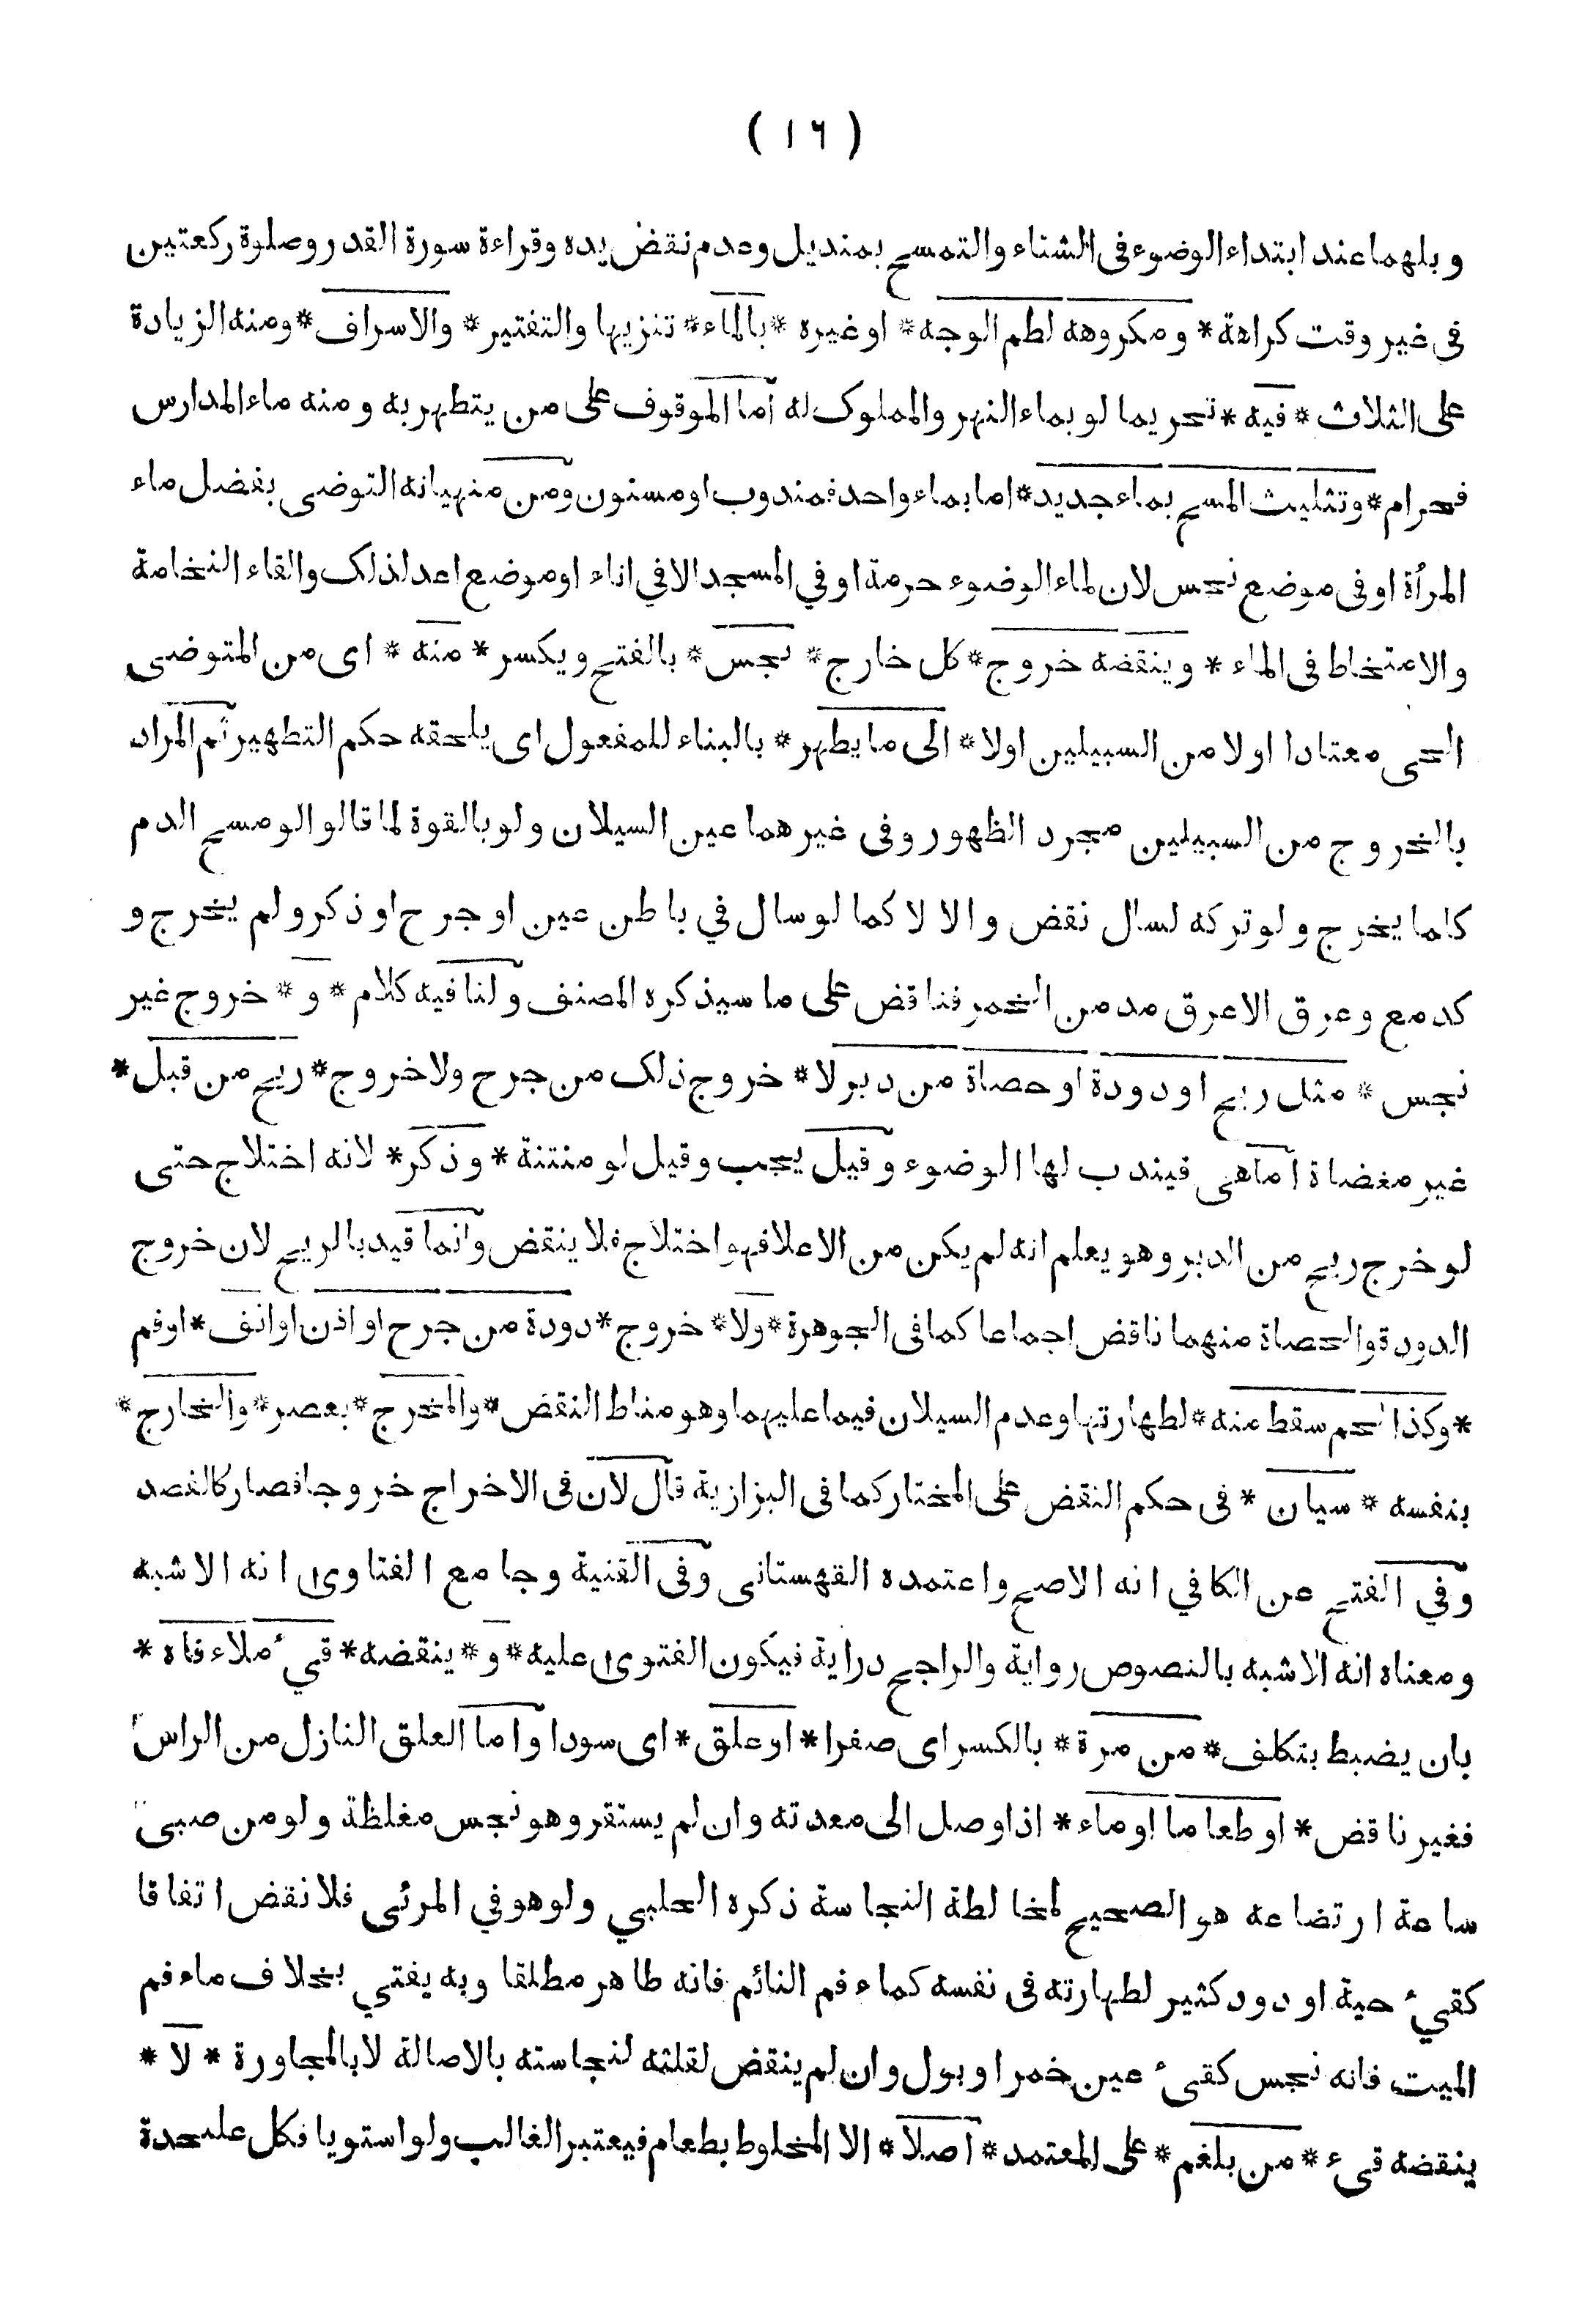 ( ١٦ )
و بلهما عند ابتداء الوضوء فى الشتاء والتمسح بمنديل وعدم نقض يده وقراءة سورة القدر وصلوة ركعتين
فى غير وقت كراهة * ومكروهه لطم الوجه * او غيره * بالماء * تنزيها والتفتير * والاسراف * ومنه الزيادة
على الثلاث * فيه * تحريما لو بماء النهر والمملوک له اما الموقوف على من يتطهر به ومنه ماء المدارس
فحرام * وتثليث المسح بماء جديد * اما بماء واحد فمندوب او مسنون ومن منهيانه التوضى بفضل ماء
المرأة او فى موضع نجس لان لماء الوضوء حرمة او في المسجد الا في اناء او موضع اعد لذلک والقاء النخامة
والامتخاط فى الماء * وينقضه خروج * كل خارج * نجس * بالفتح ويكسر * منه * اى من المتوضى
الحى معتادا اولا من السبيلين اولا * الى ما يطهر * بالبناء للمفعول اى يلحقه حكم التطهير ثم المراد
بالخروج من السبيلين مجرد الظهور وفى غيرهما عين السيلان ولو بالقوة لما قالوا لو مسح الدم
كلما يخرج ولو تركه لسال نقض والا لا كما لو سال في باطن عين او جرح او ذكر ولم يخرج و
كدمع وعرق الا عرق مدمن الخمر فناقض على ما سيذكره المصنف ولنا فيه كلام * و * خروج غير
نجس * مثل ريح او دودة او حصاة من دبر لا * خروج ذلک من جرح ولا خروج * ريح من قبل *
غير مفضاة اما هى فيندب لها الوضوء وقيل يجب وقيل لو منتنة * وذكر * لانه اختلاج حتى
لو خرج ريح من الدبر وهو يعلم انه لم يكن من الاعلا فهو اختلاج فلا ينقض وانما قيد بالريح لان خروج
الدودة والحصاة منهما ناقض اجماعا كما فى الجوهرة * ولا * خروج * دودة من جرح او اذن او انف * او فم
* وكذا لحم سقط منه * لطهارتها وعدم السيلان فيما عليهما وهو مناط النقض * والمخرج * بعصر * والخارج *
بنفسه * سيان * فى حكم النقض على المختار كما فى البزازية قال لان فى الاخراج خروجا فصار كالفصد
وفي الفتح عن الكافي انه الاصح واعتمده القهستانى وفى القنية وجامع الفتاوى انه الاشبه
ومعناه انه الاشبه بالنصوص رواية والراجح دراية فيكون الفتوى عليه * و * ينقضه * قيء ملاء فاه *
بان يضبط بتكلف * من مرة * بالكسر اى صفرا * او علق * اى سودا واما العلق النازل من الراس
فغير ناقض * او طعاما او ماء * اذا وصل الى معدته وان لم يستقر وهو نجس مغلظة ولو من صبى
ساعة ارتضاعه هو الصحيح لمخالطة النجاسة ذكره الحلبي ولو هو في المرئى فلا نقض اتفاقا
كقيء حية او دود كثير لطهارته فى نفسه كماء فم النائم فانه طاهر مطلقا وبه يفتي بخلاف ماء فم
الميت فانه نجس كقىء عين خمر او بول وان لم ينقض لقلته لنجاسته بالاصالة لا بالمجاورة * لا *
ينقضه قىء * من بلغم * على المعتمد * اصلا * الا المخلوط بطعام فيعتبر الغالب ولو استويا فكل علىحدة